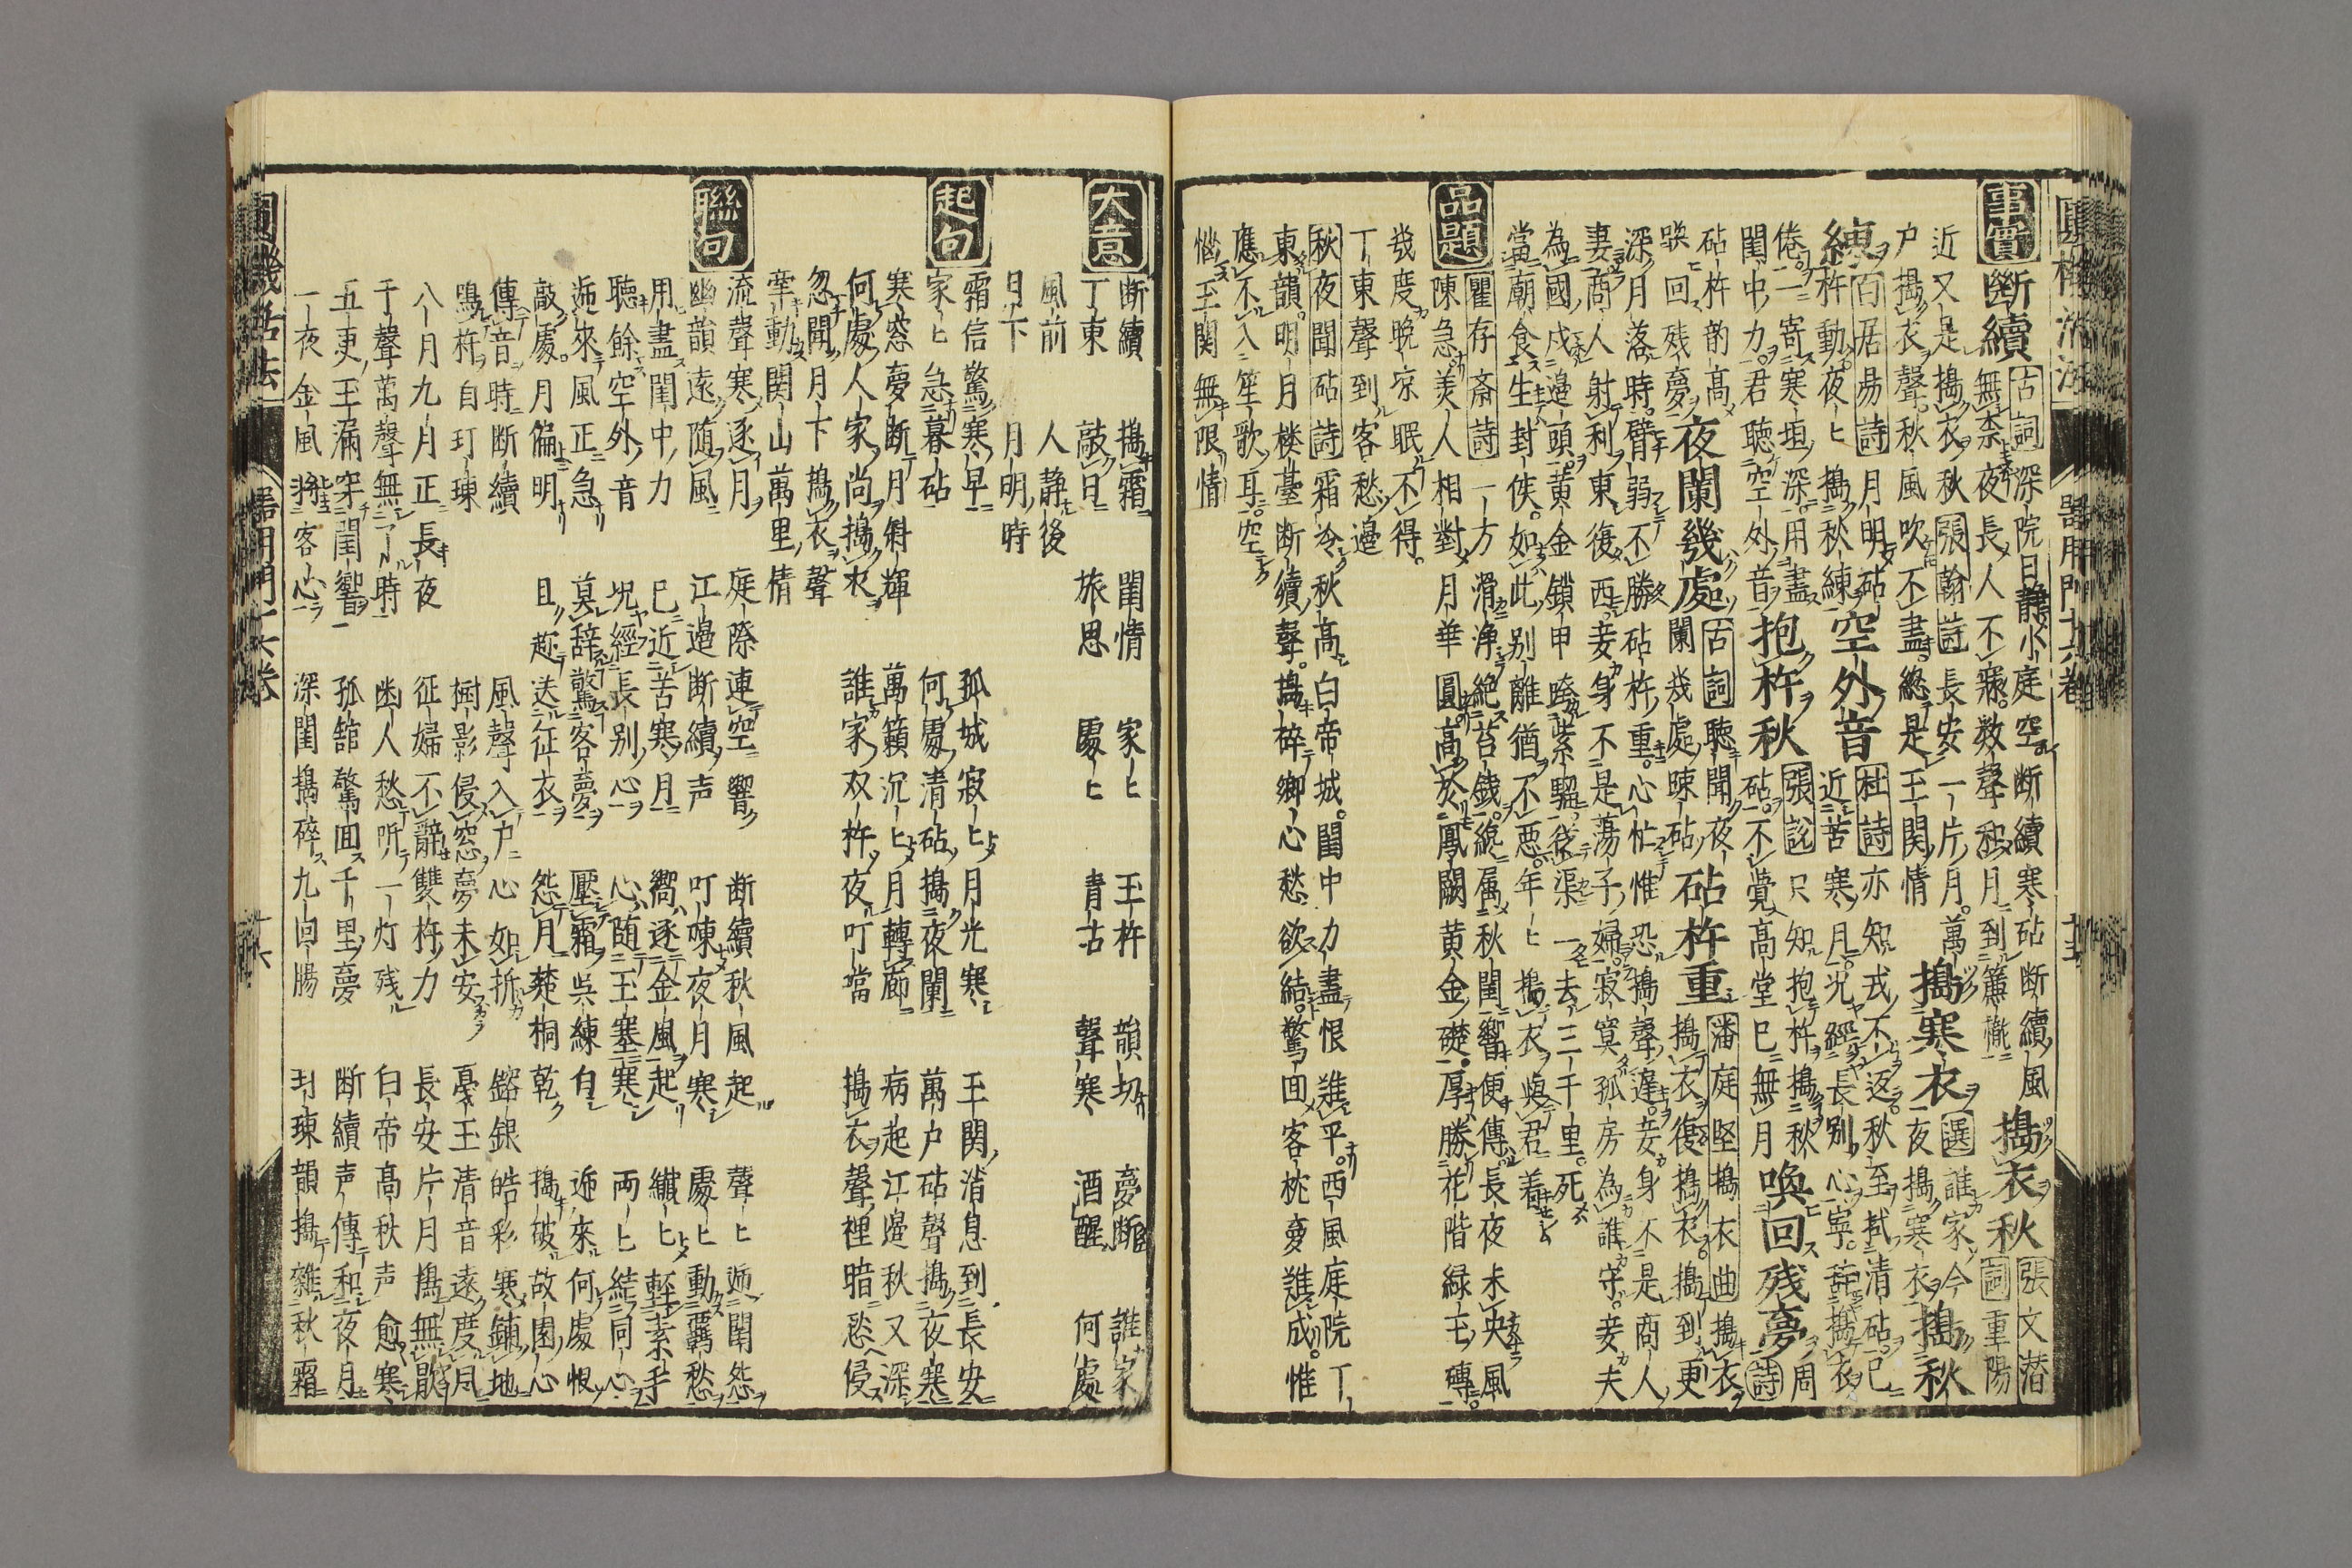 事實
斷續 古詞 深院日静小庭空断續寒砧断續風 搗衣秋 張文潜
無柰夜長人不寐数聲和月到簾櫳 詞 重陽
近又是搗衣秋 張翰詩 長安一片月萬 搗寒衣 選 誰家今 搗秋
戸搗衣聲秋風吹不盡總是玉関情 一夜搗寒衣
練 百居易詩 月明砧 空外音 杜詩 亦知戎不返秋至拭清砧已
杵動夜ヒ搗秋練 近苦寒月况經長別心寧辞搗衣
倦一寄寒垣深用盡 抱杵秋 張説 只知抱杵搗秋 喚回残夢 詩 周
閨中力君聽空外音 砧不覺高堂已無月
砧杵韵高 夜闌幾處 古詞 聴聞夜 砧杵重 潘庭堅搗衣曲 搗衣
喚回残夢 闌幾處陳砧 搗衣復搗衣搗到更
深月落時臂弱不勝砧杵重心忙惟恐搗聲遅妾身不是商人
妻商人射利東復西妾身不是蕩子婦寂寞孤房為誰守妾夫
為國戍邉頭黄金鎖甲 紫騮 渠一去三千里死
當廟食生封侯如此別離猶不悪年ヒ搗衣與君着
品題
瞿存斎詩 一方滑浄絶苔錢繞属秋閨響便傳長夜未央風
陳急美人相對月華圓高於鳳闕黄金礎厚勝花階緑玉磚
幾度晚凉眠不得
丁東聲到客愁邉
秋夜聞砧詩 霜冷秋高白帝城閨中力盡恨進平西風庭院丁
東韻明月楼臺断續聲搗碎郷心愁欲結驚回客枕夢進成惟
應不入笙歌耳空
惱玉関無限情
大意
断續 搗霜 閨情 家ヒ 玉杵 韻切 夢断 誰家
丁東 敲日 旅思 處ヒ 青古 聲寒 酒醒 何處
風前 人静後
日下 月明時
起句
霜信驚寒早 孤城寂ヒ月光寒 玉関消息到長安
家ヒ急暮砧 何處清砧搗夜闌 萬户砧聲搗夜寒
寒窓夢断月斜輝 萬籟沉ヒ月轉廊 病起江邉秋又深
何處人家尚搗衣 誰家双杵夜叮噹 搗衣聲裡暗愁侵
忽聞月下搗衣聲
牽動関山萬里情
聯句
流聲寒逐月 庭際連空響 断續秋風起 聲ヒ遞閨怨
幽韻遠随風 江邉断續声 叮㖦夜月寒 處ヒ動覊愁
用盡閨中力 已近苦寒月 響逐金風起 纎ヒ輕素手
聴餘空外音 况經長別心 心随玉塞寒 両ヒ結同心
遞來風正急 莫辞驚客夢 壓霜呉練白 遞來何處恨
敲處月偏明 且趂送征衣 怨月楚桐乾 搗破故園心
傳音時断續 風聲入户心如折 鎔銀皓彩寒鋪地
鳴杵自玎㻋 樹影侵窓夢未安 戞玉清音遠度月
八月九月正長夜 征婦不辭雙杵力 長安片月搗無歇
千聲萬聲無了時 幽人愁听一灯残 白帝高秋声愈寒
五更玉漏穿閨響 孤舘驚回千里夢 断續声傳和夜月
一夜金風將客心 深閨搗碎九回腸 玎㻋韻搗雜秋霜